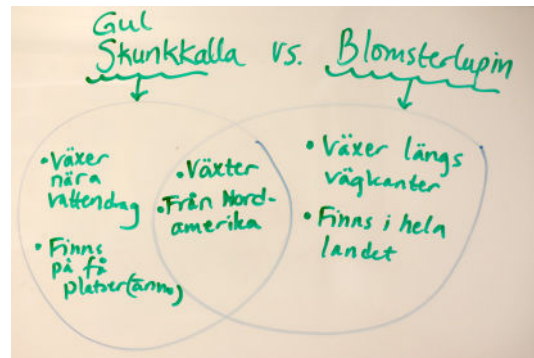 Gul
Skunkkalla vs. Blomsterlupin
• Växer
nära
vattendrag
• Finns
på få
platser (ännu)
• Växter
• Från Nord-
amerika
• Växer längs
vägkanter
• Finns i hela
landet